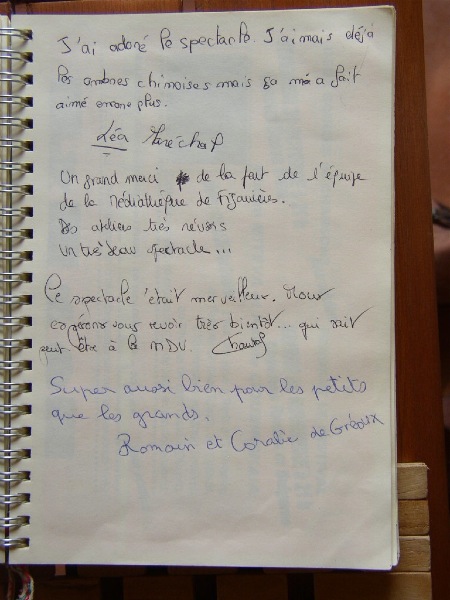 J'ai adoré le spectacle. J'aimais déjà
les ombres chinoises mais ça m'a fait
aimé encore plus.
Léa Maréchal
Un grand merci de la part de l'équipe
de la Médiathèque de Figanières.
Des ateliers très réussis
un très beau spectacle...
Le spectacle était merveilleux. Nous
espérons vous revoir très bientôt... qui sait
peut être à la MDV.
Super aussi bien pour les petits
que les grands.
Romain et Coralie de Gréoux